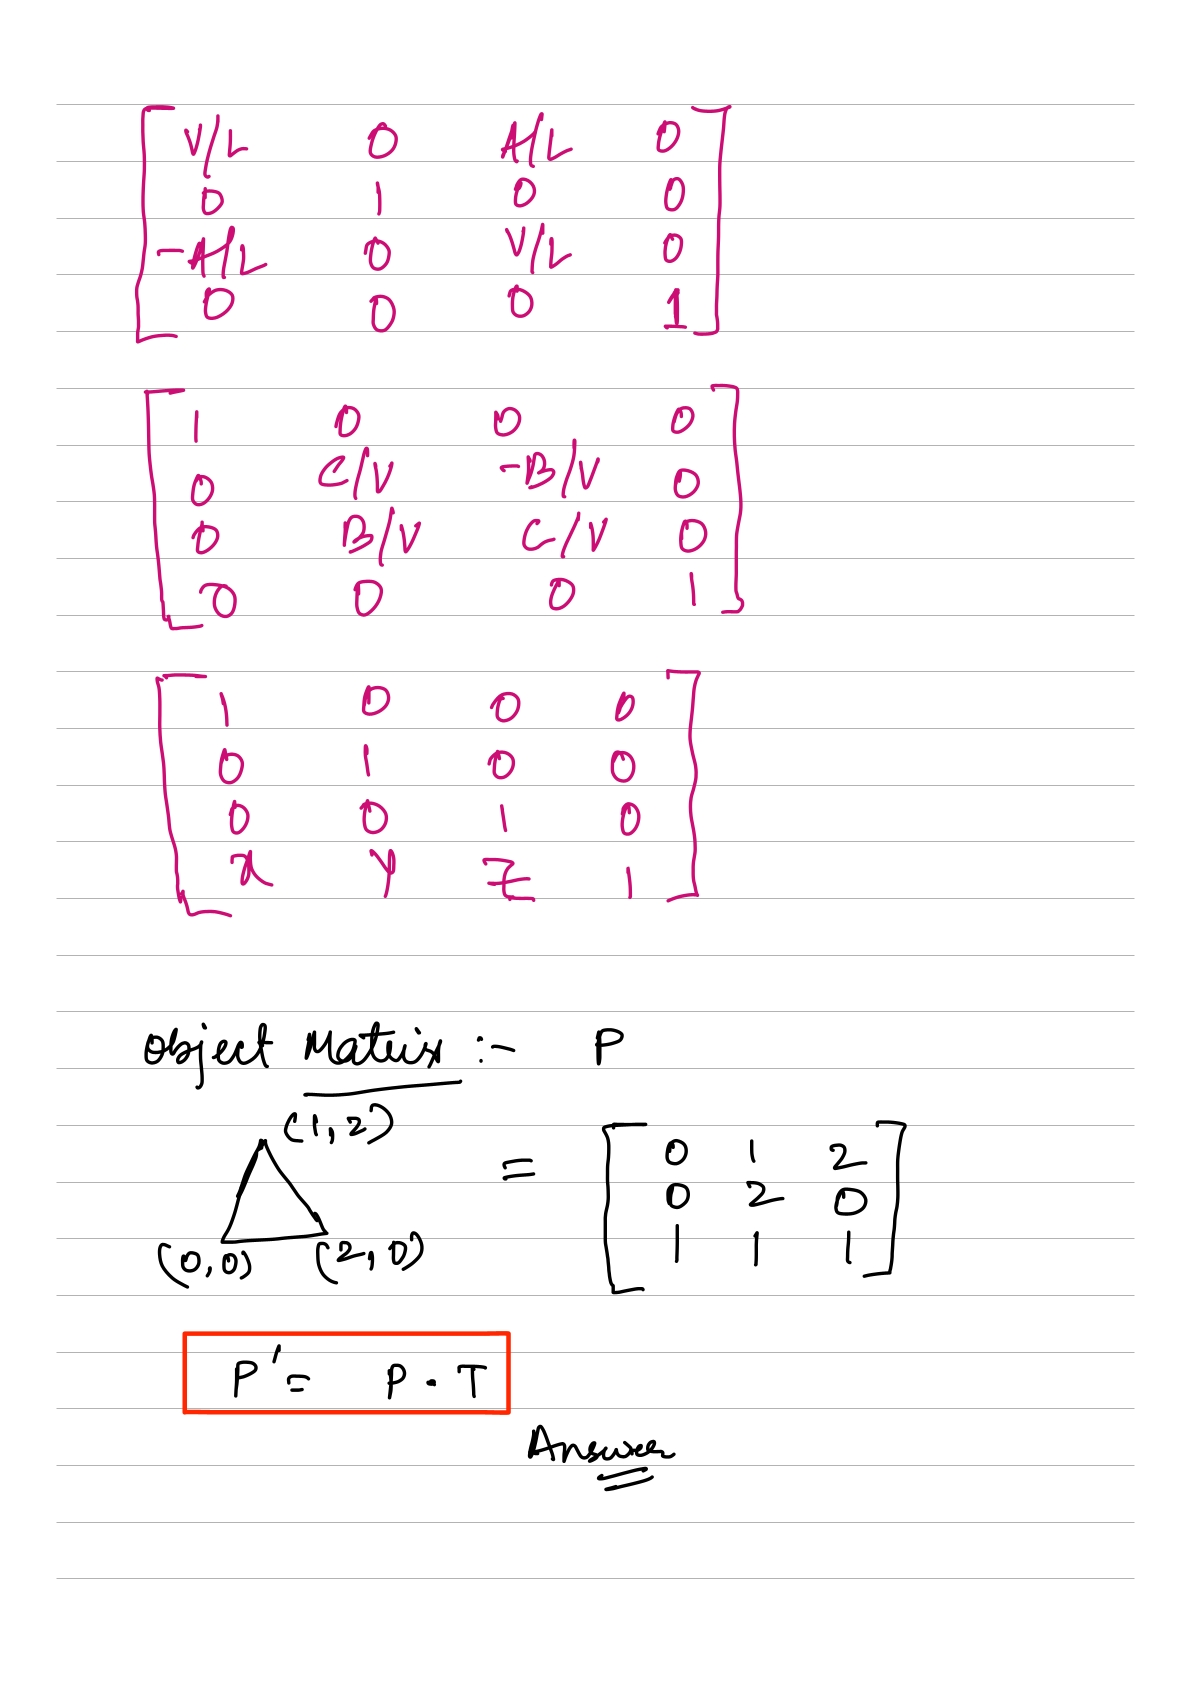 V/L 0 A/L 0
0 1 0 0
-A/L 0 V/L 0
0 0 0 1
1 0 0 0
0 C/V -B/V 0
0 B/V C/V 0
0 0 0 1
1 0 0 0
0 1 0 0
0 0 1 0
x y z 1
Object Matrix :- P
(1,2)
= 0 1 2
0 2 0
1 1 1
(0,0) (2,0)
P' = P . T
Answer